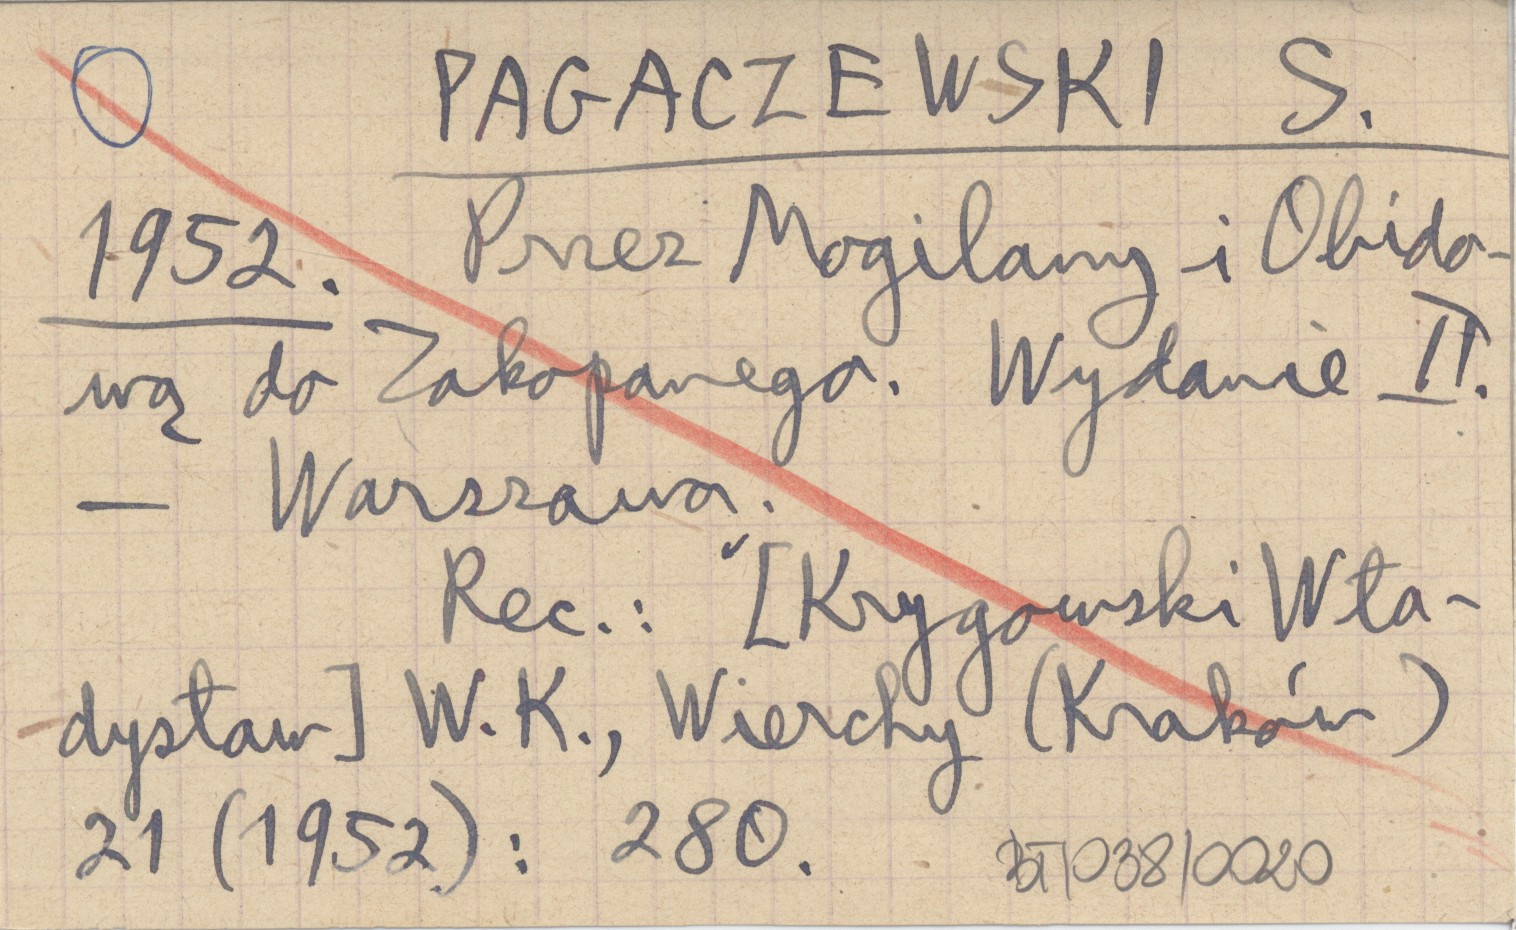 PAGACZEWSKI S.
1952. Przez Mogilany i Obido-
wą do Zakopanego. Wydanie II.
— Warszawa.
Rec.: [Krygowski Wła-
dysław] W.K., Wierchy (Kraków)
21 (1952): 280.
BT/038/0020